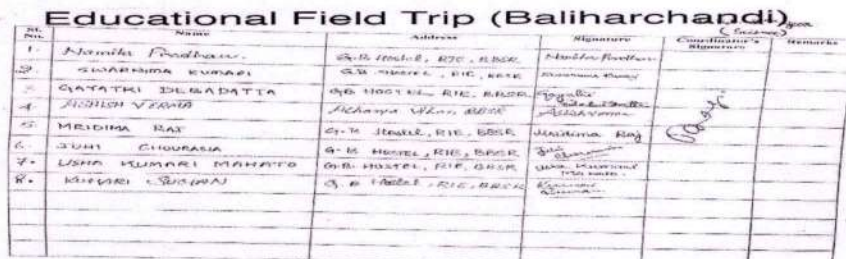 Educational Field Trip (Baliharchandi)
(Science)
Sl. No. Name Address Signature Coordinator's Signature Remarks
1. Namita Pradhan. G.B. Hostel, RIE, BBSR Namita Pradhan
2. SWARNIMA KUMARI G.B. HOSTEL, RIE, BBSR Swarnima Kumari
3. GAYATRI DEBADATTA GB HOSTEL, RIE, BBSR Gayatri Debadatta
4. ASHISH VERMA Acharya Vihar, BBSR Ashish Verma
5. MRIDIMA RAJ G.B. Hostel, RIE, BBSR Mridima Raj
6. JUHI CHOURASIA G.B. HOSTEL, RIE, BBSR Juhi Chourasia
7. USHA KUMARI MAHATO G.B. HOSTEL, RIE, BBSR Usha Kumari Mahato.
8. KUMARI SUMAN G.B Hostel, RIE, BBSR Kumari Suman